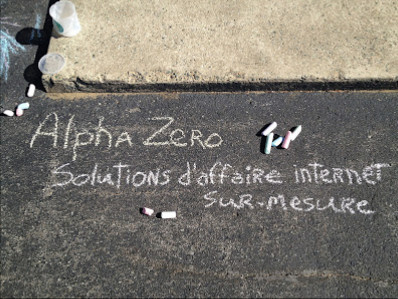 Alpha Zero
Solutions d'affaire internet
sur-mesure